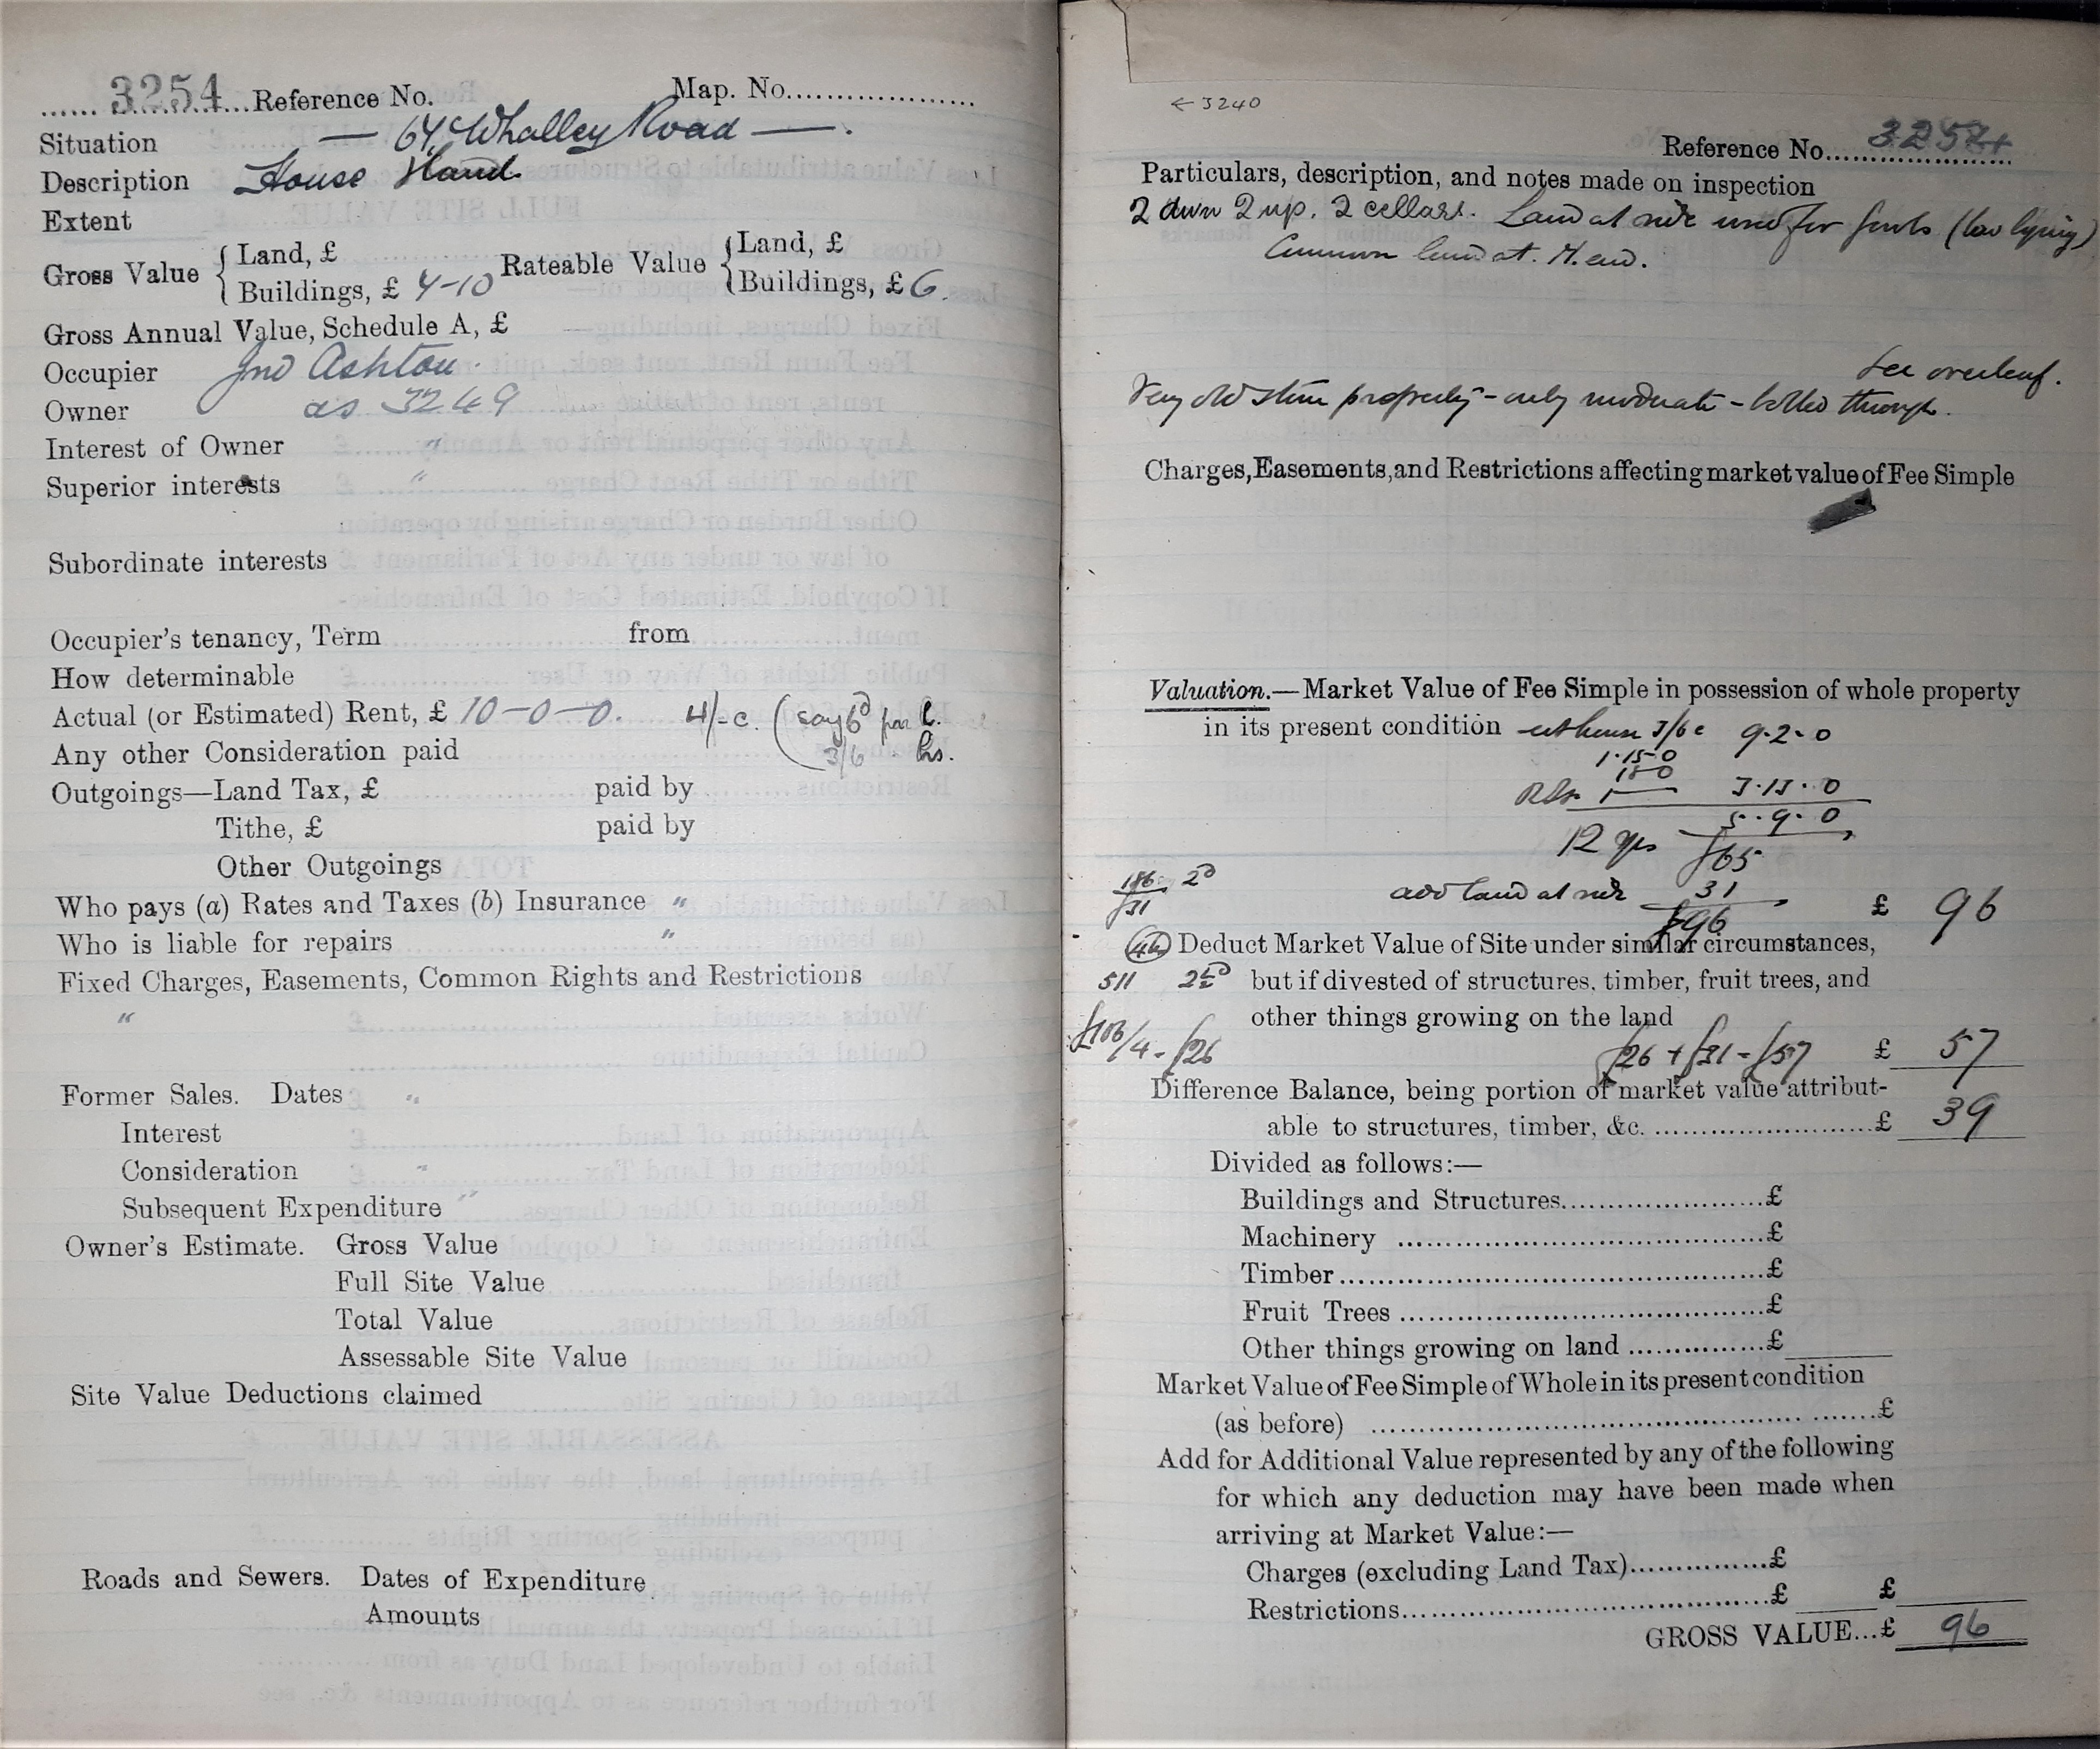 ...... 3254 ...Reference No. Map. No.....................
Situation — 64, Whalley Road —.
Description House
Extent
Gross Value { Land, £ Rateable Value { Land, £
Buildings, £ 4-10 Buildings, £ 6.
Gross Annual Value, Schedule A, £
Occupier Jno Ashton.
Owner as 3249
Interest of Owner "
Superior interests "
Subordinate interests
Occupier's tenancy, Term from
How determinable
Actual (or Estimated) Rent, £ 10-0-0. 4/- c. (say 6d per
3/6
Any other Consideration paid
Outgoings—Land Tax, £ paid by
Tithe, £ paid by
Other Outgoings
Who pays (a) Rates and Taxes (b) Insurance "
Who is liable for repairs "
Fixed Charges, Easements, Common Rights and Restrictions
"
Former Sales. Dates "
Interest
Consideration "
Subsequent Expenditure "
Owner's Estimate. Gross Value
Full Site Value
Total Value
Assessable Site Value
Site Value Deductions claimed
Roads and Sewers. Dates of Expenditure
Amounts
← 3240
Reference No.
Particulars, description, and notes made on inspection
2 down 2 up. 2 cellars. Land at side used for fowls (low lying)
Common land at N. end.
See overleaf.
Very old stone property - only moderate - bolted through.
Charges, Easements, and Restrictions affecting market value of Fee Simple
Valuation.—Market Value of Fee Simple in possession of whole property
in its present condition 3/6 c 9-2-0
1-15-0
18-0
3-13-0
5-9-0
12 yrs £65
186 2d add land at side 31
£31 £96 £ 96
Deduct Market Value of Site under similar circumstances,
511 2½d but if divested of structures, timber, fruit trees, and
other things growing on the land
£106/4 - £26 £26 + £31 - £57 £ 57
Difference Balance, being portion of market value attribut-
able to structures, timber, &c. ........................£ 39
Divided as follows:—
Buildings and Structures.....................£
Machinery ......................................£
Timber............................................£
Fruit Trees .....................................£
Other things growing on land ...............£
Market Value of Fee Simple of Whole in its present condition
(as before) ................................................£
Add for Additional Value represented by any of the following
for which any deduction may have been made when
arriving at Market Value:—
Charges (excluding Land Tax)...............£
Restrictions......................................£ £
GROSS VALUE...£ 96